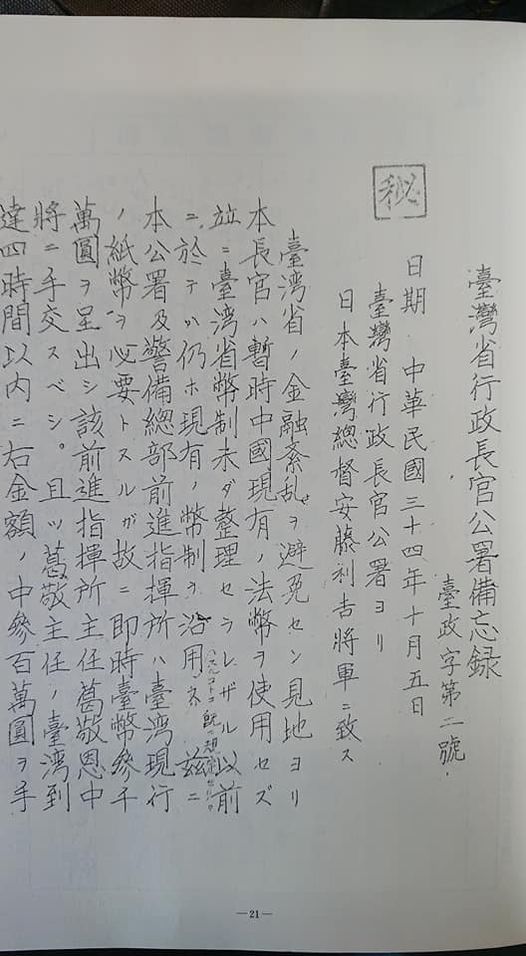 秘
臺灣省行政長官公署備忘録
臺政字第二號
日期 中華民國三十四年十月五日
臺灣省行政長官公署ヨリ
日本臺灣總督安藤利吉將軍ニ致ス
臺湾省ノ金融紊乱ヲ避免セン見地ヨリ
本長官ハ暫時中國現有ノ法幣ヲ使用セズ
並ニ臺湾省幣制未ダ整理セラレザル以前
ニ於テハ仍ホ現有ノ幣制ヲ沿用ス 茲ニ
本公署及警備總部前進指揮所ハ臺湾現行
ノ紙幣ヲ必要トスルガ故ニ即時臺幣參千
萬圓ヲ呈出シ該前進指揮所主任葛敬恩中
將ニ手交スベシ。且ツ葛敬主任ノ臺湾到
達四時間以内ニ右金額ノ中參百萬圓ヲ手
—21—